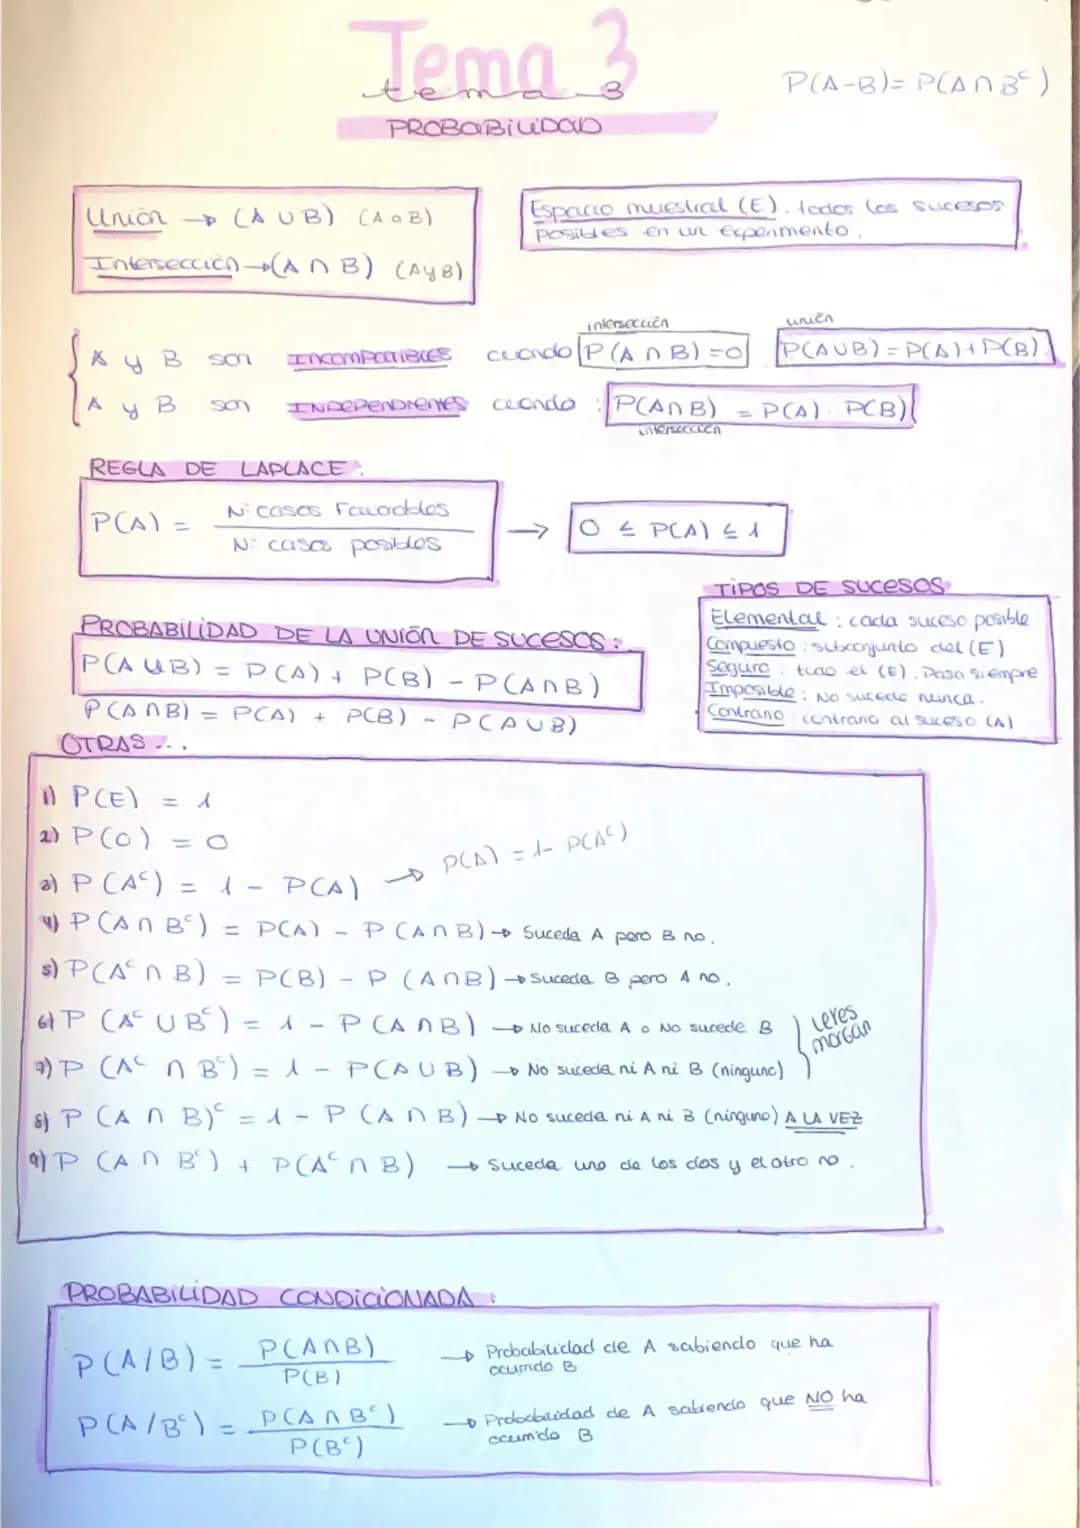 Tema 3
tema 3
P(A-B)= P(A∩Bᶜ)
PROBABILIDAD
Unión → (A ∪ B) (A o B)
Intersección → (A ∩ B) (A y B)
Espacio muestral (E). todos los sucesos
posibles en un experimento.
intersección
unión
A y B son INCOMPATIBLES cuando P(A ∩ B) = 0 P(A∪B) = P(A)+P(B)
A y B son INDEPENDIENTES cuando : P(A∩B) = P(A) . P(B)
intersección
REGLA DE LAPLACE:
P(A) = Nº casos favorables
Nº casos posibles
→ 0 ≤ P(A) ≤ 1
TIPOS DE SUCESOS
Elemental : cada suceso posible
Compuesto : subconjunto del (E)
Seguro : todo el (E). Pasa siempre
Imposible : No sucede nunca.
Contrario contrario al suceso (A)
PROBABILIDAD DE LA UNIÓN DE SUCESOS :
P(A ∪ B) = P(A) + P(B) - P(A∩B)
P(A∩B) = P(A) + P(B) - P(A∪B)
OTRAS ...
1) P(E) = 1
2) P(O) = 0
3) P(Aᶜ) = 1 - P(A) → P(A) = 1- P(Aᶜ)
4) P(A∩ Bᶜ) = P(A) - P(A∩B) → Suceda A pero B no.
5) P(Aᶜ∩ B) = P(B) - P (A∩B) → Suceda B pero A no.
6) P (Aᶜ ∪ Bᶜ) = 1 - P(A∩B) → No suceda A o No sucede B
Leyes
morgan
7) P (Aᶜ ∩ Bᶜ) = 1 - P(A∪B) → No suceda ni A ni B (ninguno)
8) P (A ∩ B)ᶜ = 1 - P (A∩B) → No suceda ni A ni B (ninguno) A LA VEZ
9) P (A∩ Bᶜ) + P(Aᶜ ∩ B) → Suceda uno de los dos y el otro no.
PROBABILIDAD CONDICIONADA :
P(A/B) = P(A∩B)
P(B)
→ Probabilidad de A sabiendo que ha
ocurrido B
P(A/Bᶜ) = P(A∩Bᶜ)
P(Bᶜ)
→ Probabilidad de A sabiendo que NO ha
ocurrido B